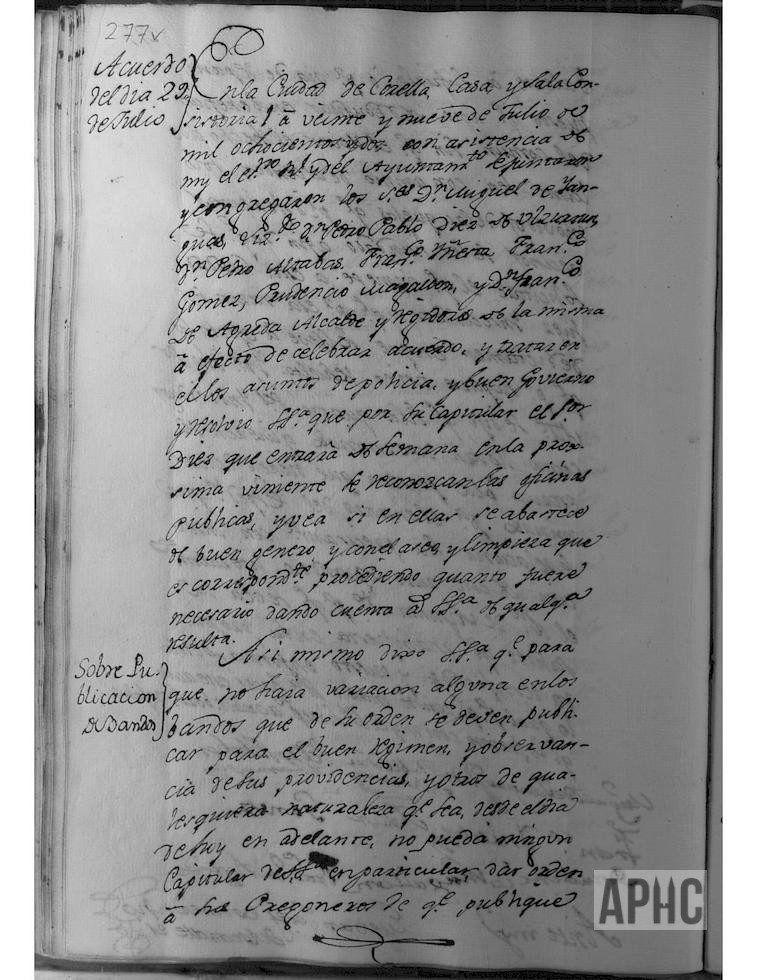 277v
Acuerdo
del dia 29
de Julio
En la Ciudad de Corella, Casa, y Sala Con-
sistorial à veinte y nueve de Julio de
mil ochocientos y dos con asistencia de
my el es.no Rl. y del Ayuntam.to se juntaron
y congregaron los s.res D.n Miguel de Yan-
guas, D.n Pedro Pablo Diez de Ulzurrun,
D.n Pedro Altabas, Fran.co Fran.co
Gomez, Prudencio Magallon, y D.n Fran.co
de Agreda Alcalde y Regidores de la misma
à efecto de celebrar acuerdo, y tratar en
el los asuntos de policia, y buen Govierno
y resolvio SS.a que por su Capitular el s.or
Diez que entrarà de semana en la pròx-
sima viniente se reconozcan las oficinas
publicas, y vea si en ellas se abastece
de buen genero, y con el aseo, y limpieza que
es correspond.te procediendo quanto fuere
necesario dando cuenta à SS.a de qualq.a
resulta.
Sobre Pu-
blicacion
de Bandos
Asi mismo dixo SS.a q.e para
que no haia variacion alguna en los
bandos que de su orden se deven publi-
car para el buen regimen, y observan-
cia de sus providencias, y otros de qua-
lesquiera naturaleza q.e sea, desde el dia
de hoy en adelante, no pueda ningun
Capitular de SS.a en particular, dar orden
à los Pregoneros de q.e publique
APHC